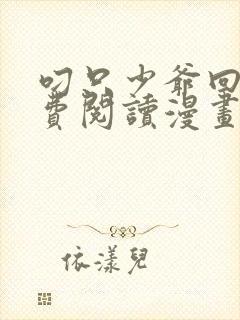 叼只少爺回
費閱讀漫畫
依漾兒